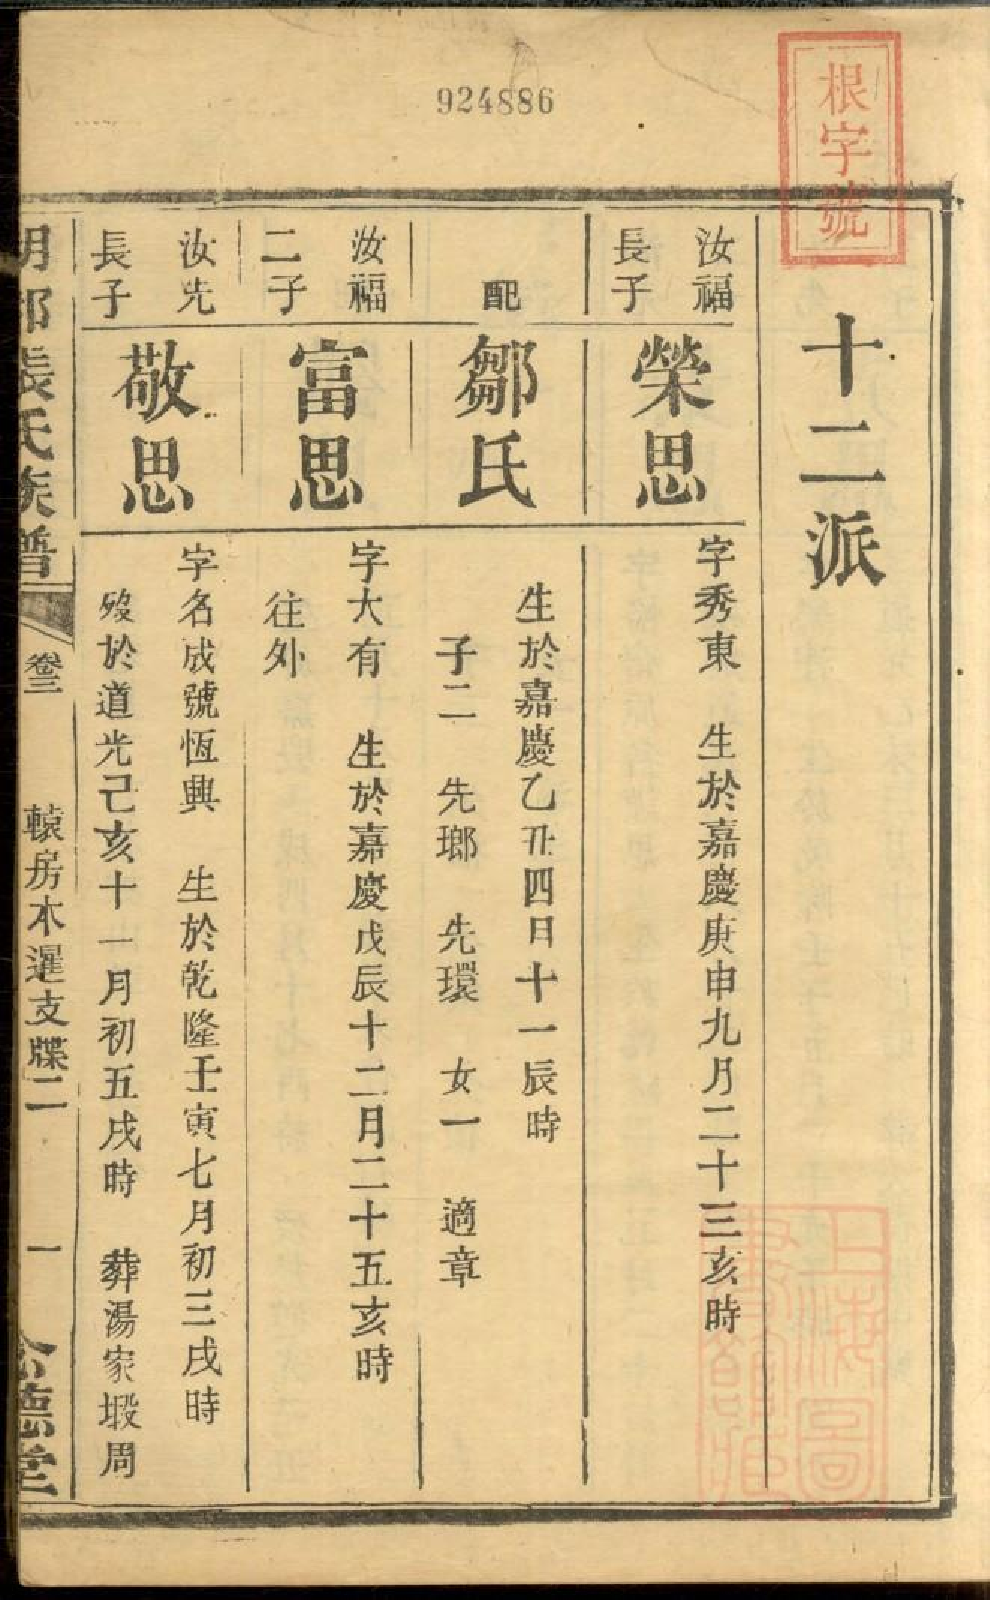 924886
根字號
十二派
汝福
長子
榮思
字秀東 生於嘉慶庚申九月二十三亥時
配
鄒氏
生於嘉慶乙丑四日十一辰時
子二 先瑯 先環 女一 適章
汝福
二子
富思
字大有 生於嘉慶戊辰十二月二十五亥時
往外
汝先
長子
敬思
字名成號恆興 生於乾隆壬寅七月初三戌時
歿於道光己亥十一月初五戌時 葬湯家塅周
張氏族譜
卷三
轅房木遲支牒二
一
德堂
上海圖書館藏